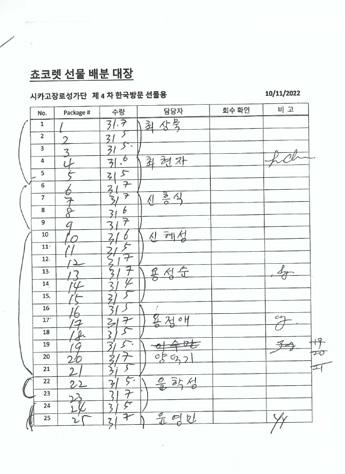 쵸코렛 선물 배분 대장
시카고장로성가단 제 4 차 한국방문 선물용 10/11/2022
No. Package # 수량 담당자 회수 확인 비 고
1 1 31.7 최상묵
2 2 31 5
3 3 31 5
4 4 31.6 최현자
5 5 31 5
6 6 31 7
7 7 31 7 신흥식
8 8 31 6
9 9 31 7
10 10 31 6 신혜성
11 11 31 5
12 12 31 7
13 13 31 7 용성순
14 14 31 4
15 15 31 5
16 16 31 5
17 17 31 7 용정애
18 18 31 5
19 19 31 5 19
20 20 31 7 양덕기 20
21 21 31 5 21
22 22 31 5 윤학성
23 23 31 7
24 24 31 5
25 25 31 7 윤영민 YY